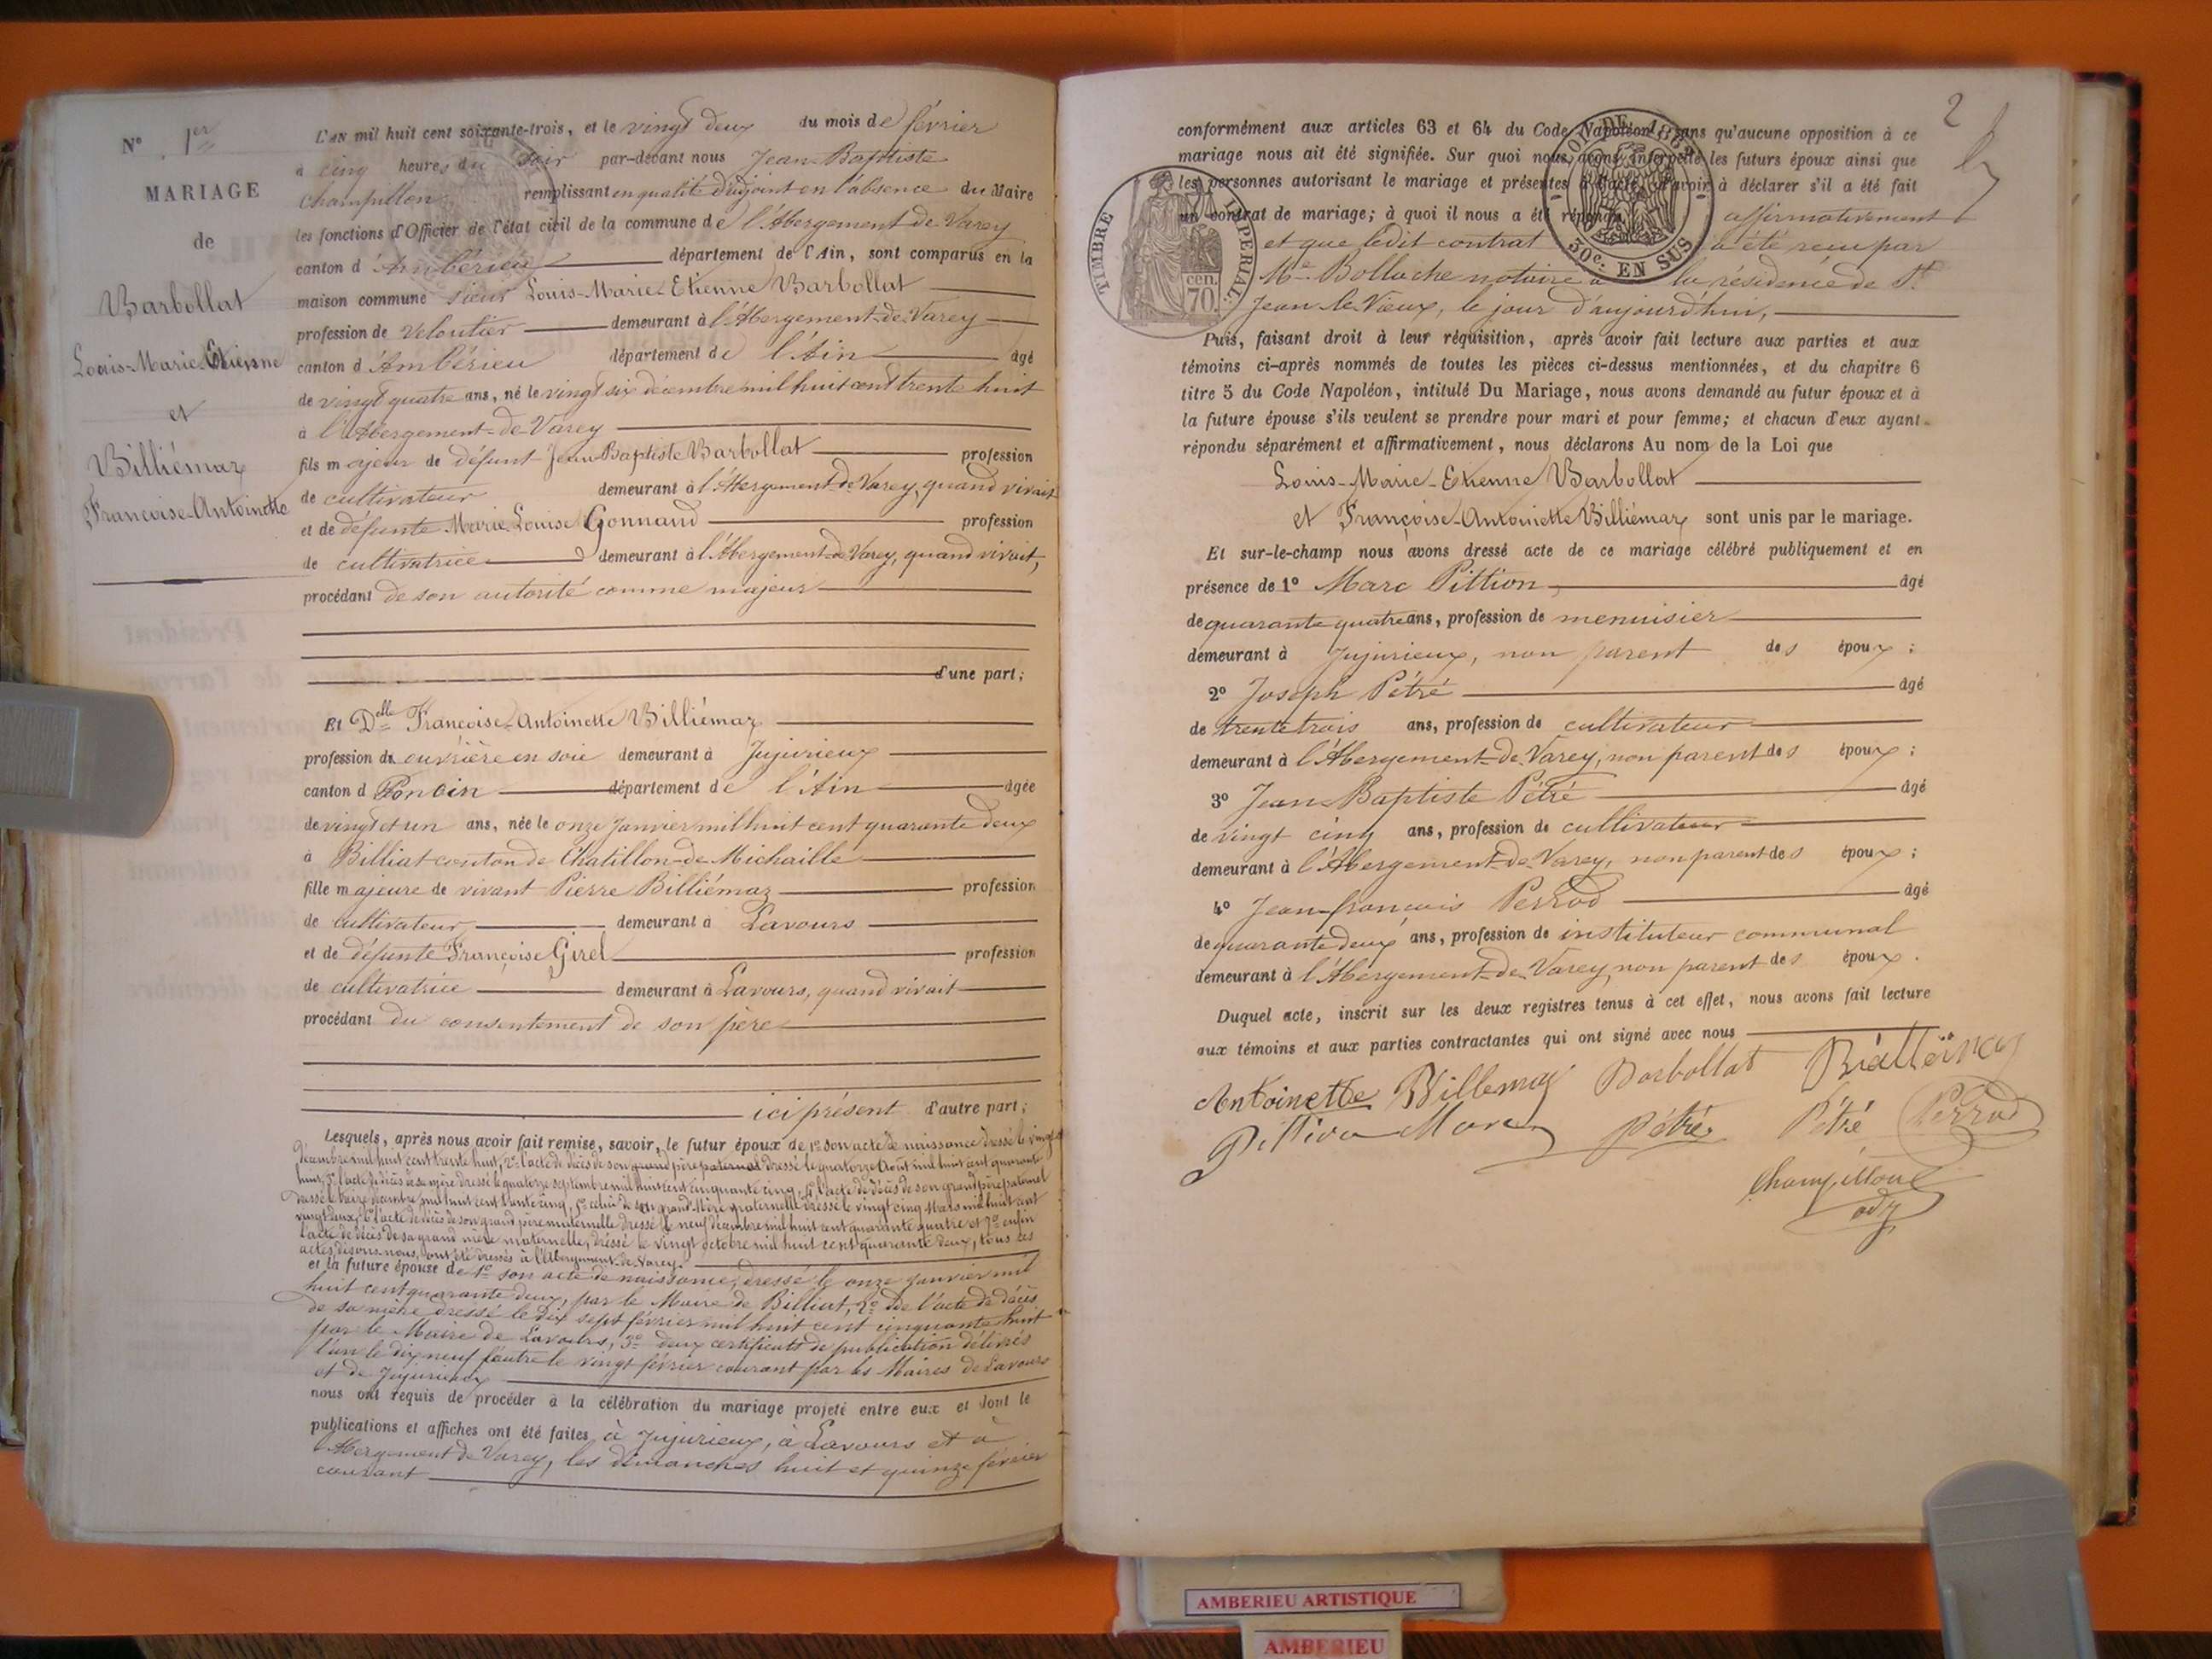 N° 1er
MARIAGE
de
Barbollat
Louis-Marie-Etienne
et
Billiémaz
Françoise-Antoinette
L'AN mil huit cent soixante-trois, et le vingt deux du mois de février
à cinq heures du soir par-devant nous Jean-Baptiste
Champillon remplissant en qualité d'adjoint en l'absence du Maire
les fonctions d'Officier de l'état civil de la commune de l'Abergement de Varey
canton d'Ambérieu département de l'Ain, sont comparus en la
maison commune sieur Louis-Marie-Etienne Barbollat
profession de veloutier demeurant à l'Abergement-de-Varey
canton d'Ambérieu département de l'Ain âgé
de vingt quatre ans, né le vingt six décembre mil huit cent trente huit
à l'Abergement-de-Varey
fils majeur de défunt Jean-Baptiste Barbollat profession
de cultivateur demeurant à l'Abergement-de-Varey, quand vivait
et de défunte Marie Louise Gonnand profession
de cultivatrice demeurant à l'Abergement-de-Varey, quand vivait,
procédant de son autorité comme majeur
d'une part;
Et Delle Françoise-Antoinette Billiémaz
profession de ouvrière en soie demeurant à Jujurieux
canton d Poncin département de l'Ain âgée
de vingt et un ans, née le onze Janvier mil huit cent quarante deux
à Billiat canton de Chatillon-de-Michaille
fille majeure de vivant Pierre Billiémaz profession
de cultivateur demeurant à Lavours
et de défunte Françoise Girel profession
de cultivatrice demeurant à Lavours, quand vivait
procédant du consentement de son père
ici présent d'autre part;
Lesquels, après nous avoir fait remise, savoir, le futur époux de 1° son acte de naissance dressé le vingt
décembre mil huit cent trente huit, 2° l'acte de décès de son grand père paternel dressé le quatorze Août mil huit cent quarante
huit, 3° l'acte de décès de sa mère dressé le quatorze septembre mil huit cent cinquante cinq, 4° l'acte de décès de son grand père paternel
dressé le treize décembre mil huit cent trente cinq, 5° celui de son grand Mère paternelle dressé le vingt cinq Mars mil huit cent
vingt deux, 6° l'acte de décès de son grand père maternelle dressé le neuf décembre mil huit cent quarante quatre et 7° enfin
l'acte de décès de sa grand mère maternelle, dressé le vingt octobre mil huit cent quarante deux, tous ces
actes, disons-nous, ont été dressés à l'Abergement-de-Varey.
et la future épouse de 1° son acte de naissance, dressé le onze Janvier mil
huit cent quarante deux, par le Maire de Billiat, 2° de l'acte de décès
de sa mère dressé le dix sept février mil huit cent cinquante huit
par le Maire de Lavours, 3° deux certificats de publication délivrés
l'un le dix neuf l'autre le vingt février courant par les Maires de Lavours
et de Jujurieux
nous ont requis de procéder à la célébration du mariage projeté entre eux et dont le
publications et affiches ont été faites à Jujurieux, à Lavours et à
l'Abergement de Varey, les dimanches huit et quinze février
courant
2
conformément aux articles 63 et 64 du Code Napoléon, sans qu'aucune opposition à ce
mariage nous ait été signifiée. Sur quoi nous avons interpellé les futurs époux ainsi que
les personnes autorisant le mariage et présentes à l'acte, d'avoir à déclarer s'il a été fait
un contrat de mariage; à quoi il nous a été répondu affirmativement
et que ledit contrat a été reçu par
Me Bollache notaire à la résidence de St
Jean-le-Vieux, le jour d'aujourd'hui,
TIMBRE IMPERIAL
70 cen.
DE 1862
30c. EN SUS
Puis, faisant droit à leur réquisition, après avoir fait lecture aux parties et aux
témoins ci-après nommés de toutes les pièces ci-dessus mentionnées, et du chapitre 6
titre 5 du Code Napoléon, intitulé Du Mariage, nous avons demandé au futur époux et à
la future épouse s'ils veulent se prendre pour mari et pour femme; et chacun d'eux ayant
répondu séparément et affirmativement, nous déclarons Au nom de la Loi que
Louis-Marie-Etienne Barbollat
et Françoise-Antoinette Billiémaz sont unis par le mariage.
Et sur-le-champ nous avons dressé acte de ce mariage célébré publiquement et en
présence de 1° Marc Pittion, âgé
de quarante quatre ans, profession de menuisier
demeurant à Jujurieux, non parent des époux;
2° Joseph Pétré âgé
de trente trois ans, profession de cultivateur
demeurant à l'Abergement-de-Varey, non parent des époux;
3° Jean-Baptiste Pétré âgé
de vingt cinq ans, profession de cultivateur
demeurant à l'Abergement-de-Varey, non parent des époux;
4° Jean-françois Perrod âgé
de quarante deux ans, profession de instituteur communal
demeurant à l'Abergement-de-Varey, non parent des époux.
Duquel acte, inscrit sur les deux registres tenus à cet effet, nous avons fait lecture
aux témoins et aux parties contractantes qui ont signé avec nous
Antoinette Billemaz Barbollat
Pittion Marc Pétré Pétré Perrod
Champillon
adj
AMBERIEU ARTISTIQUE
AMBERIEU